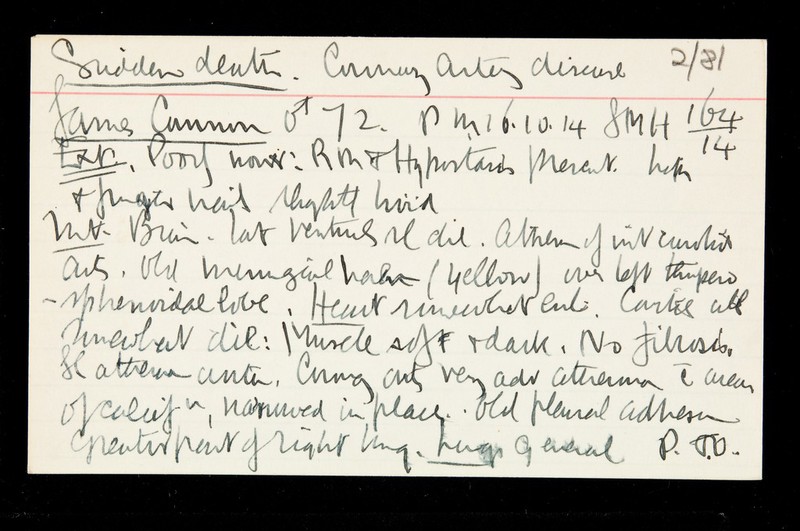 Sudden death. Coronary Artery disease 2/81
James Cannon Oet 72. P.M. 16.10.14 SMH 164/14
Ext. Poorly nour: R.M. & Hypostasis present. Lips
& finger nails slightly livid
Int. Brain. Lat ventricles sl dil. Atherom of int carotid
Arts. Old meningeal haem (yellow) over left tempero
-sphenoidal lobe. Heart somewhat enl. Cavities all
somewhat dil: Muscle soft & dark. No fibrosis.
Sl atherom aorta. Coronary arts very adv atheroma c areas
of calcifn, narrowed in places. Old pleural adhesion
greater part of right lung. Lungs General P.T.O.